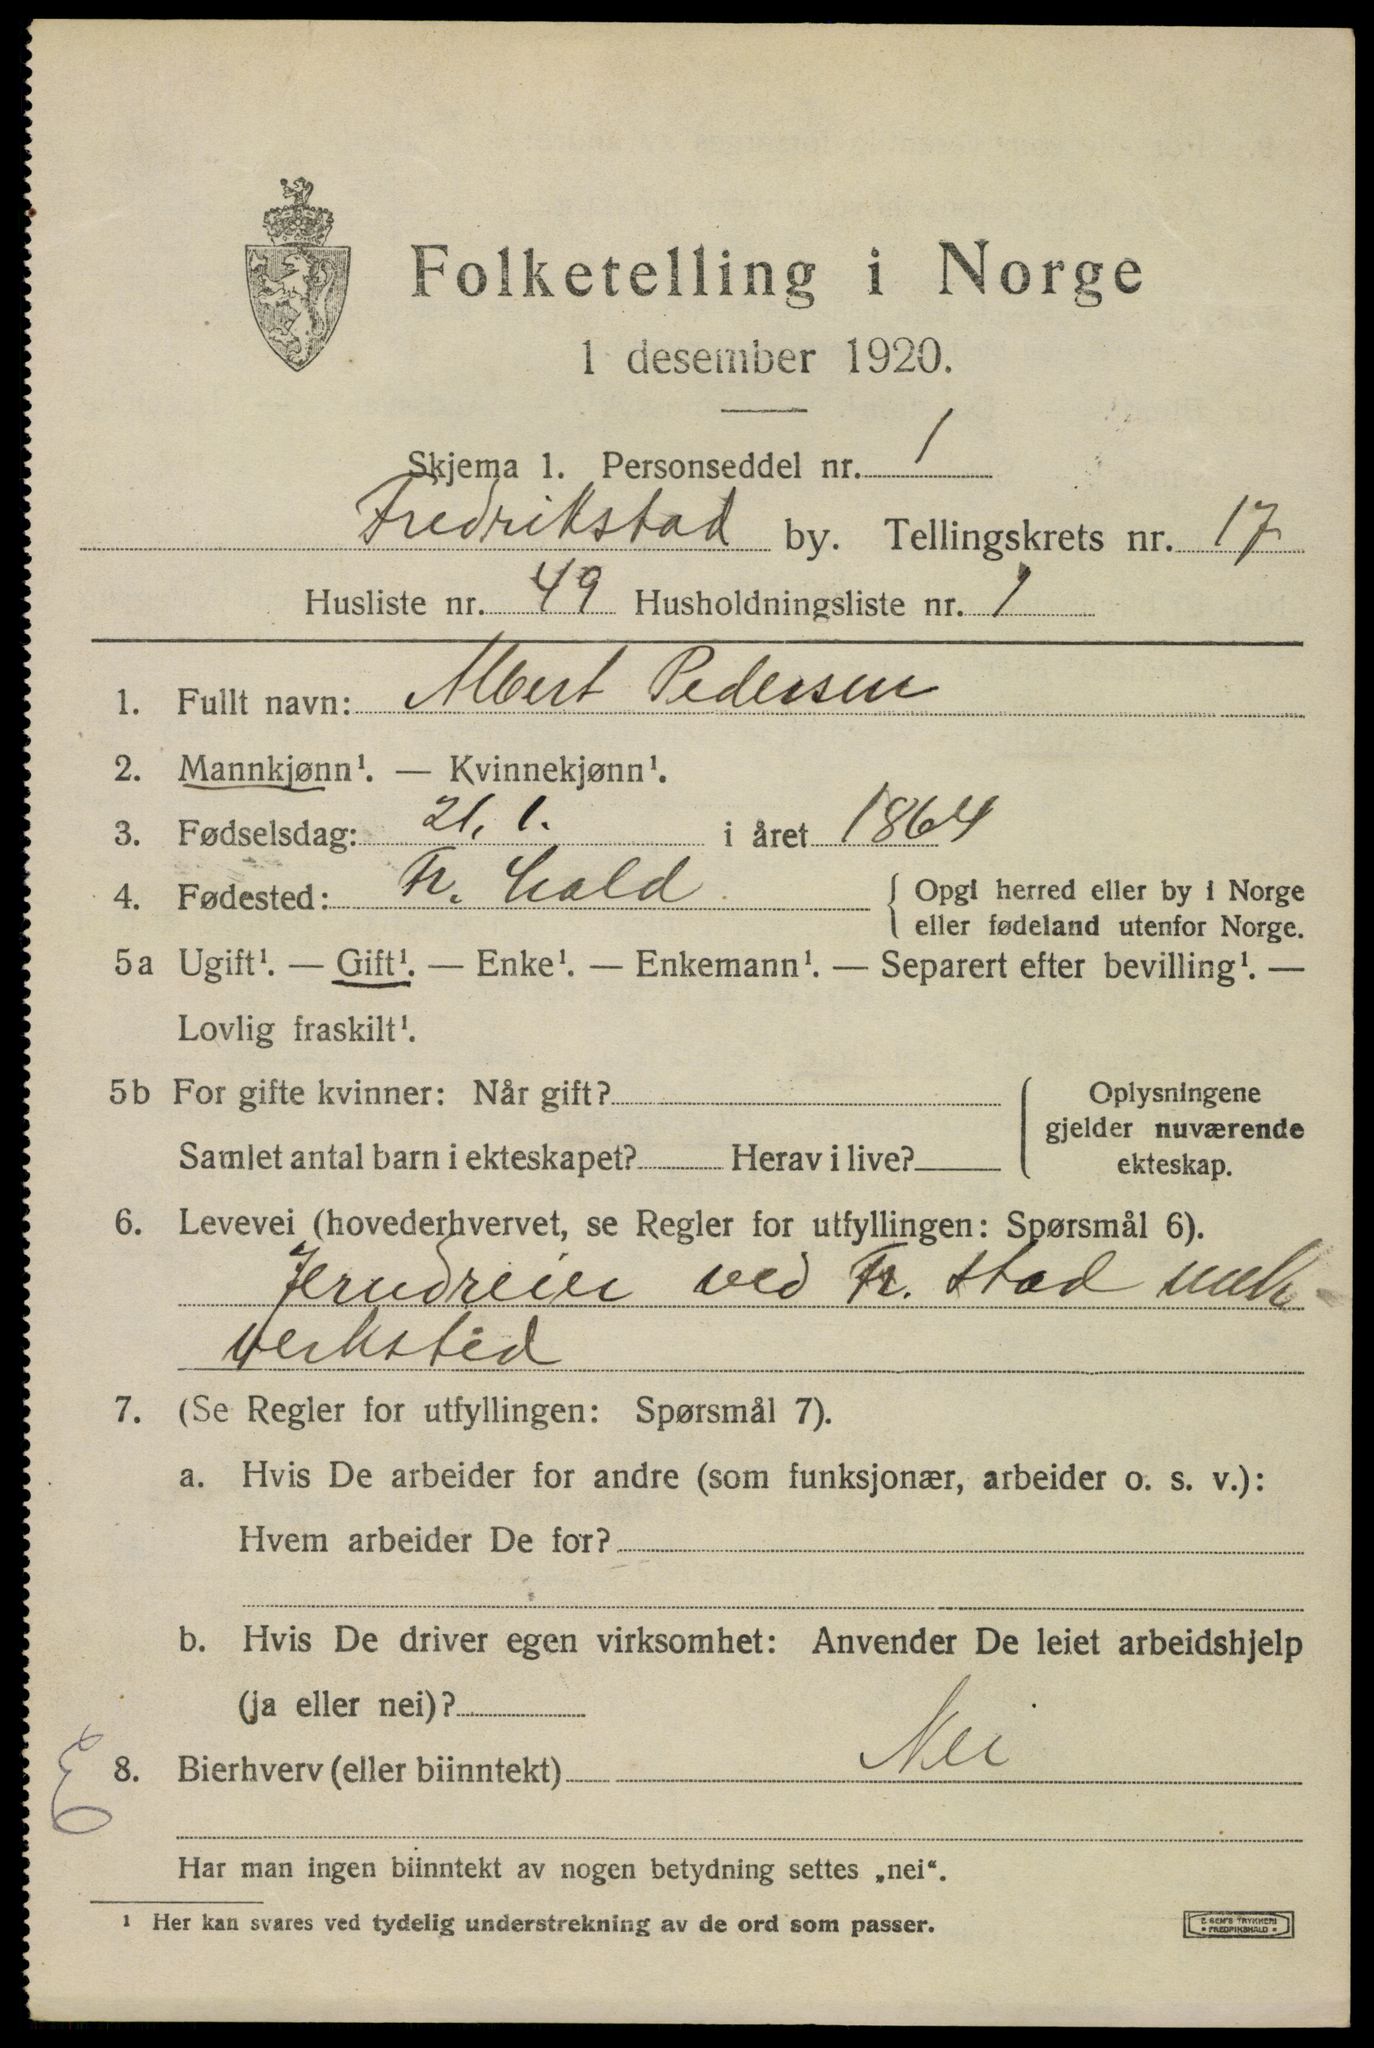 Folketelling i Norge
1 desember 1920.
Skjema 1. Personseddel nr. 1
Fredrikstad by. Tellingskrets nr. 17
Husliste nr. 49 Husholdningsliste nr. 1
1. Fullt navn: Albert Pedersen
2. Mannkjønn¹. — Kvinnekjønn¹.
3. Fødselsdag: 21. 1. i året 1864
4. Fødested: Fr. hald { Opgi herred eller by i Norge
eller fødeland utenfor Norge.
5a Ugift¹. — Gift¹. — Enke¹. — Enkemann¹. — Separert efter bevilling¹. —
Lovlig fraskilt¹.
5b For gifte kvinner: Når gift? { Oplysningene
gjelder nuværende
Samlet antal barn i ekteskapet? Herav i live?
ekteskap.
6. Levevei (hovederhvervet, se Regler for utfyllingen: Spørsmål 6).
Jerndreier ved Fr. stad mek
verksted
7. (Se Regler for utfyllingen: Spørsmål 7).
a. Hvis De arbeider for andre (som funksjonær, arbeider o. s. v.):
Hvem arbeider De for?
b. Hvis De driver egen virksomhet: Anvender De leiet arbeidshjelp
(ja eller nei)?
E 8. Bierhverv (eller biinntekt) Nei
Har man ingen biinntekt av nogen betydning settes „nei“.
¹ Her kan svares ved tydelig understrekning av de ord som passer.
E SEM'S TRYKKERI
• FREDRIKSHALD •